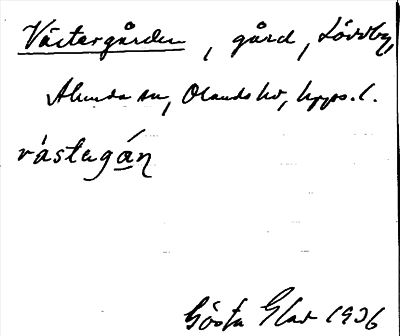 Västergården, gård, Lövsby,
Alunda sn, Olands hd, Upps. l.
våstegán
Gösta Elav 1936